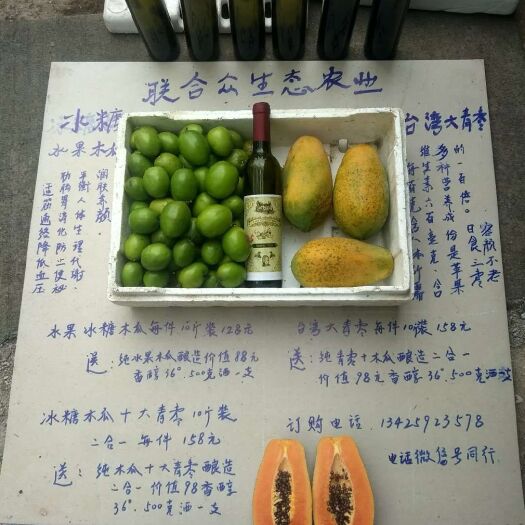 联合众生态农业
冰糖
水果木瓜
润肤养颜
平衡人体生理代谢
助消化防便秘
适筋通经降低血压
台湾大青枣
容颜不老
日食三枣
的一百倍。
多种营养成份是苹果
维生素六百毫克，含
水果冰糖木瓜每件10斤装128元
送：纯水果木瓜酿造价值88元
香醇36°.500克酒一支
台湾大青枣每件10斤装158元
送：纯青枣十木瓜酿造二合一
价值98元香醇36°.500克酒一支
冰糖木瓜十大青枣10斤装
二合一每件158元
送：纯木瓜十大青枣酿造
二合一价值98香醇
36°.500克酒一支
订购电话.13425923578
电话微信号同行.